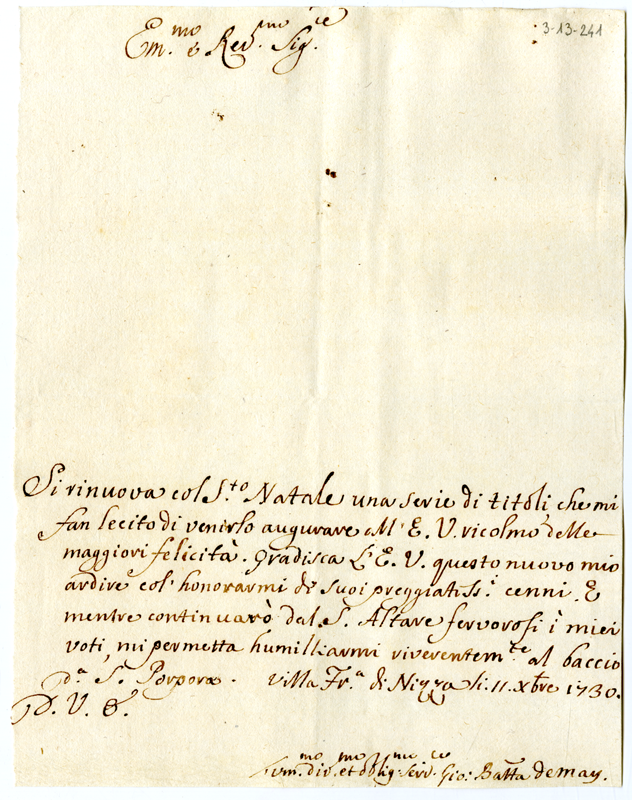 3-13-241
Em.mo e Rev.mo Sig.re
Si rinuova col S.to Natale una serie di titoli, che mi
fan lecito di venirlo augurare all' E. V. ricolmo delle
maggiori felicità. Gradisca l'E. V. questo nuovo mio
ardire col' honorarmi de' suoi preggiatiss.i cenni. E
mentre continuarò dal S. Altare fervorosi i miei
voti, mi permetta humilliarmi riverentem.te al baccio
d.a S. Porpora. Villa Fr.a di Nizza li 11. Xbre 1730.
D. V. E.
div.mo et oblig.mo Serv.re Gio: Batta demay.